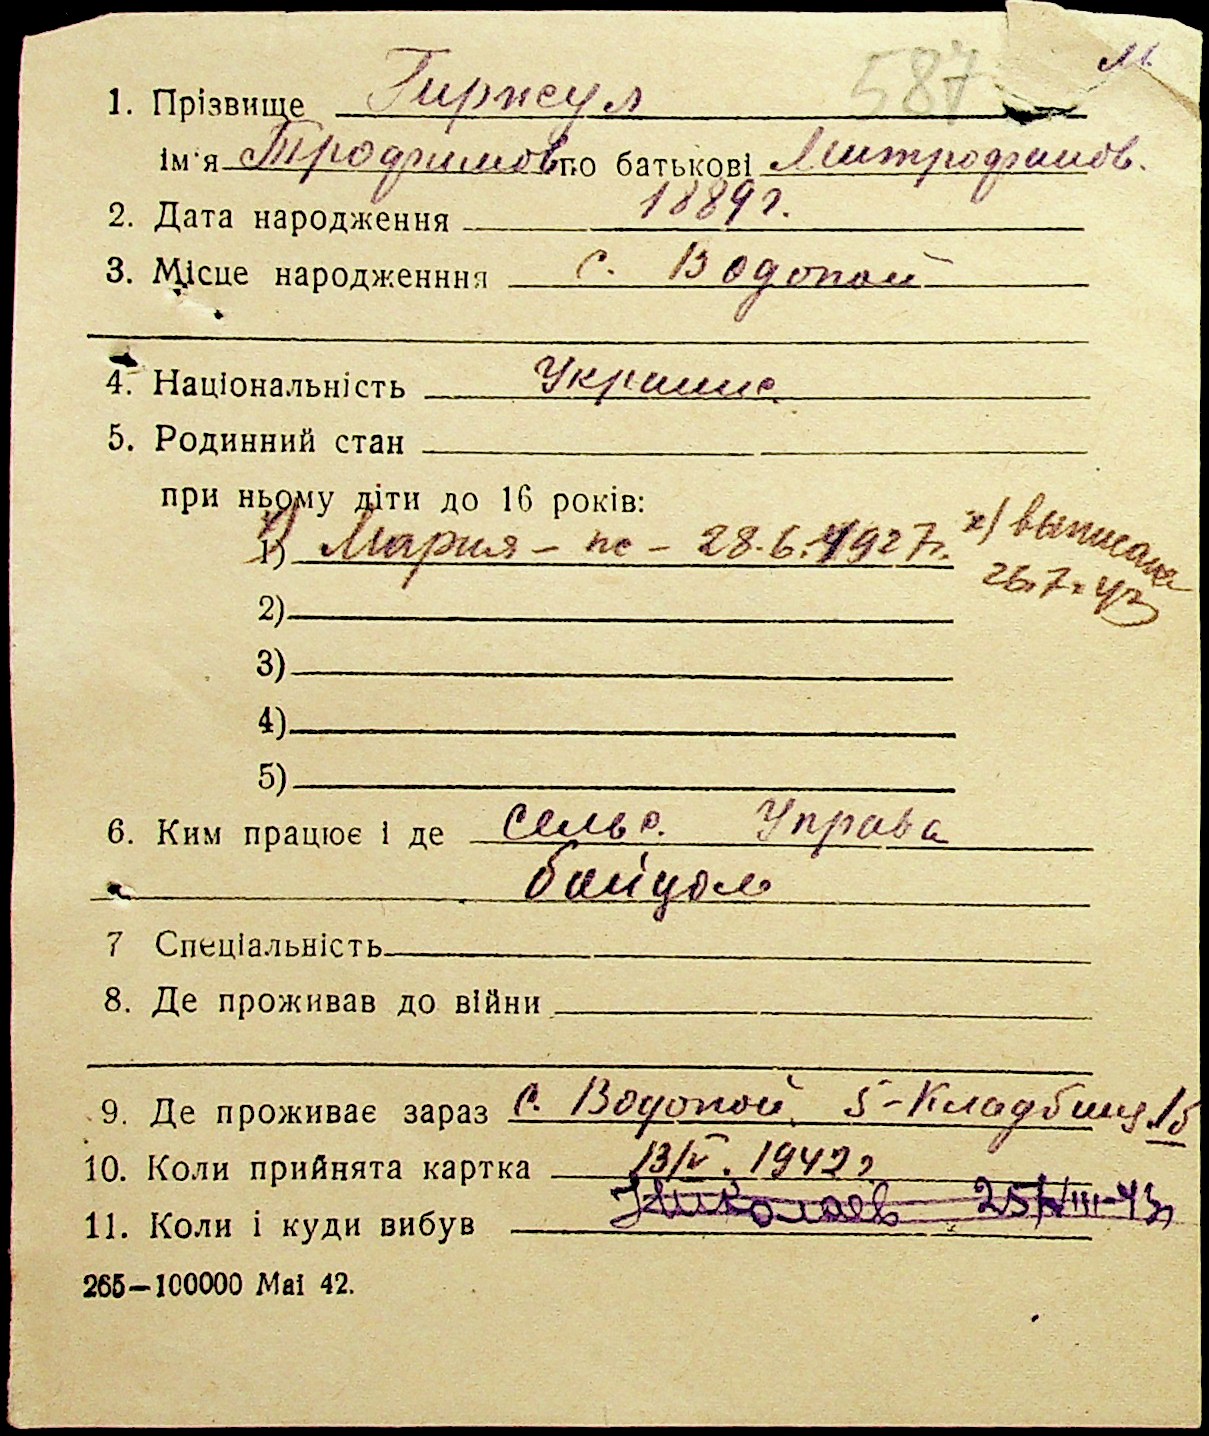 587 м.
1. Прізвище Гиржул
ім'я Трофимов по батькові Митрофанов.
2. Дата народження 1889 г.
3. Місце народженння с. Водопой
4. Національність Украинс
5. Родинний стан
при ньому діти до 16 років:
1) Мария - пс - 28.6.1927г. х) выписана
26.7.43
2)
3)
4)
5)
6. Ким працює і де сельс. Управа
бойцом
7 Спеціальність
8. Де проживав до війни
9. Де проживає зараз с. Водопой, 5-Кладбищ 15
10. Коли прийнята картка 13/V. 1942 г
11. Коли і куди вибув Николаев 25/VIII-43г
265—100000 Маі 42.